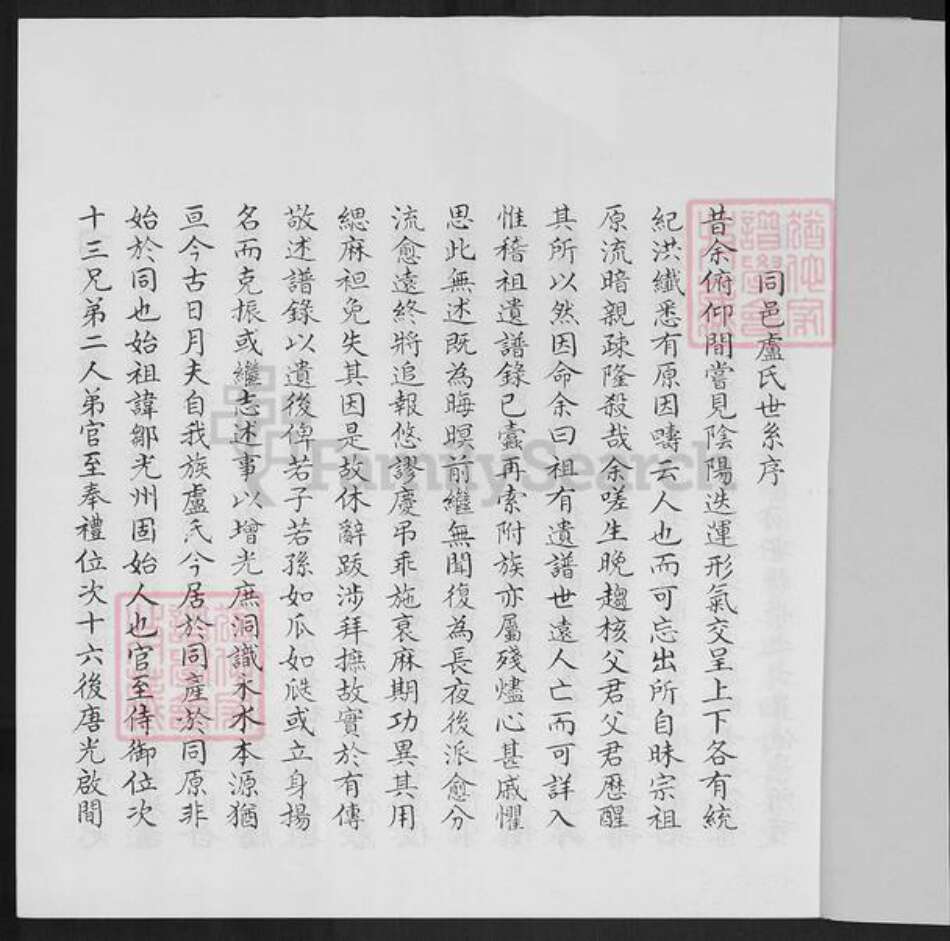 同邑盧氏世系序
昔余俯仰間嘗見陰陽迭運形氣交呈上下各有統
紀洪纖悉有原因疇云人也而可忘出所自昧宗祖
原流暗親疎隆殺哉余嗟生晚趨核父君父君歷醒
其所以然因命余曰祖有遺譜世遠人亡而可詳入
惟稽祖遺譜錄已蠹再索附族亦屬殘燼心甚戚懼
思此無述既為晦暝前繼無聞復為長夜後派愈分
流愈遠終將追報悠謬慶吊乖施衰麻期功異其用
緦麻袒免失其因是故休辭跋涉拜撫故實於有傳
敬述譜錄以遺後俾若子若孫如瓜如瓞或立身揚
名而克振或繼志述事以增光庶洞識禾水本源猶
亘今古日月夫自我族盧氏今居於同產於同原非
始於同也始祖諱鄒光州固始人也官至侍御位次
十三兄弟二人弟官至奉禮位次十六後唐光啟間
FamilySearch